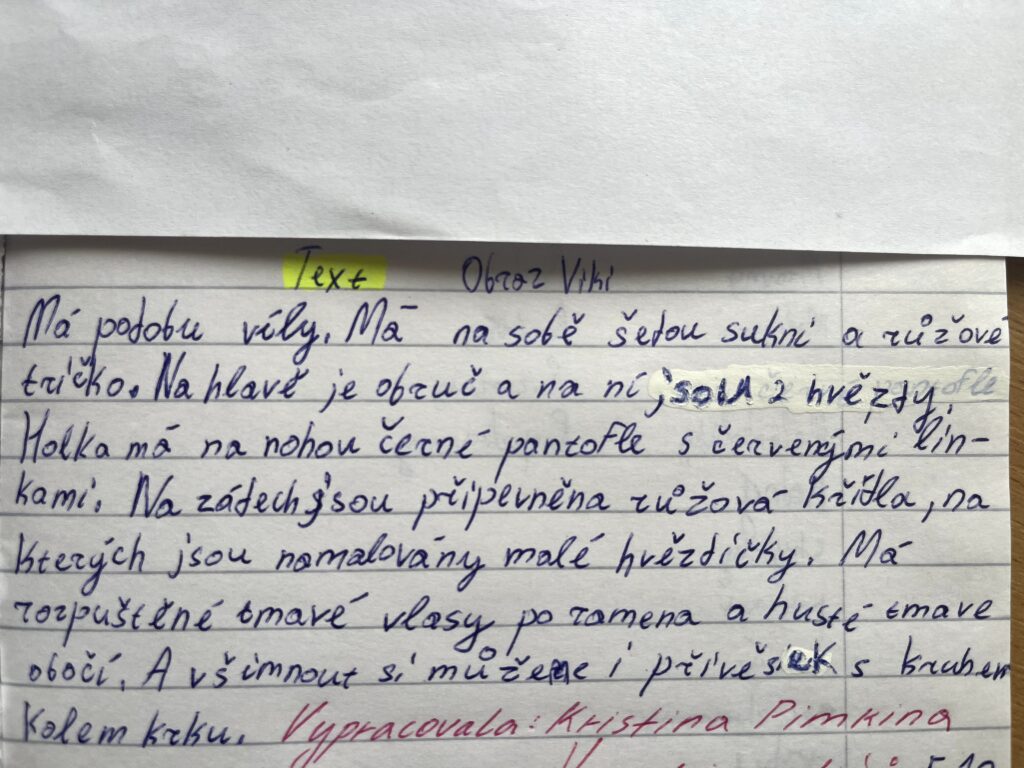 Text Obraz Viki
Má podobu víly. Má na sobě šedou sukni a růžové
tričko. Na hlavě je obruč a na ní jsou 2 hvězdy.
Holka má na nohou černé pantofle s červenými lin-
kami. Na zádech jsou připevněna růžová křídla, na
kterých jsou namalovány malé hvězdičky. Má
rozpuštěné tmavé vlasy po ramena a husté tmavé
obočí. A všimnout si můžeme i přívěsek s kruhem
kolem krku. Vypracovala: Kristina Pimkina